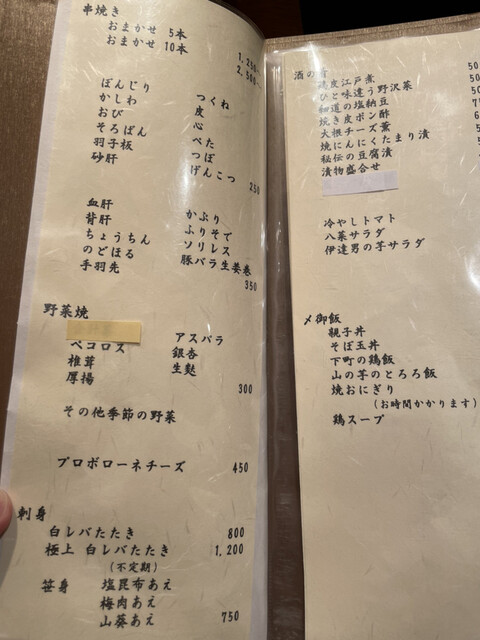 串焼き
おまかせ 5本 1,250-
おまかせ 10本 2,500-
ぼんじり つくね
かしわ 皮
おび 心
そろばん べた
羽子板 つぼ
砂肝 げんこつ 250
血肝 かぶり
背肝 ふりそで
ちょうちん ソリレス
のどほる 豚バラ生姜巻
手羽先 350
野菜焼
アスパラ
ペコロス 銀杏
椎茸 生麩
厚揚 300
その他季節の野菜
プロボローネチーズ 450
刺身
白レバたたき 800
極上 白レバたたき 1,200
(不定期)
笹身 塩昆布あえ
梅肉あえ
山葵あえ 750
酒の肴
鶏皮江戸煮
ひと味違う野沢菜
細道の塩納豆
焼き皮ポン酢
大根チーズ薫
焼にんにくたまり漬
秘伝の豆腐漬
漬物盛合せ
冷やしトマト
八菜サラダ
伊達男の芋サラダ
〆御飯
親子丼
そぼ玉丼
下町の鶏飯
山の芋のとろろ飯
焼おにぎり
(お時間かかります)
鶏スープ